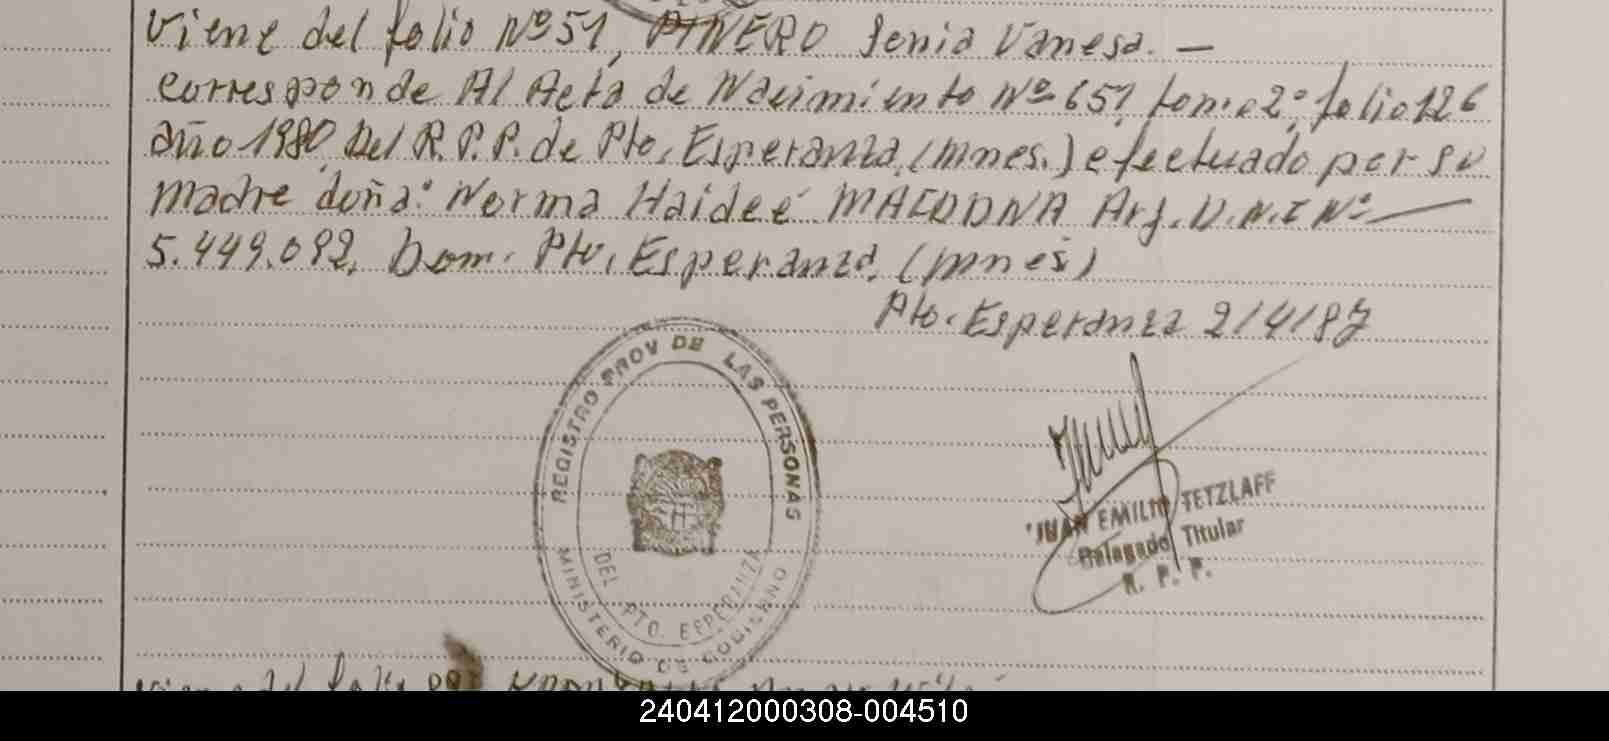 Viene del folio Nº 51, PIÑERO Senia Vanesa. —
Corresponde Al Acta de Nacimiento Nº 651, tomo 2º, folio 126
año 1980, Del R.P.P. de Pto. Esperanza, (mnes.) efectuado por su
madre doña: Norma Haideé MACODNA Arg. D.N.I Nº —
5.449.092, Dom. Pto. Esperanza, (mnes)
Pto. Esperanza 2/4/87
REGISTRO PROV DE LAS PERSONAS
DEL PTO. ESPERANZA
MINISTERIO DE GOBIERNO
JUAN EMILIO TETZLAFF
Delegado Titular
R. P. P.
del folio
240412000308-004510